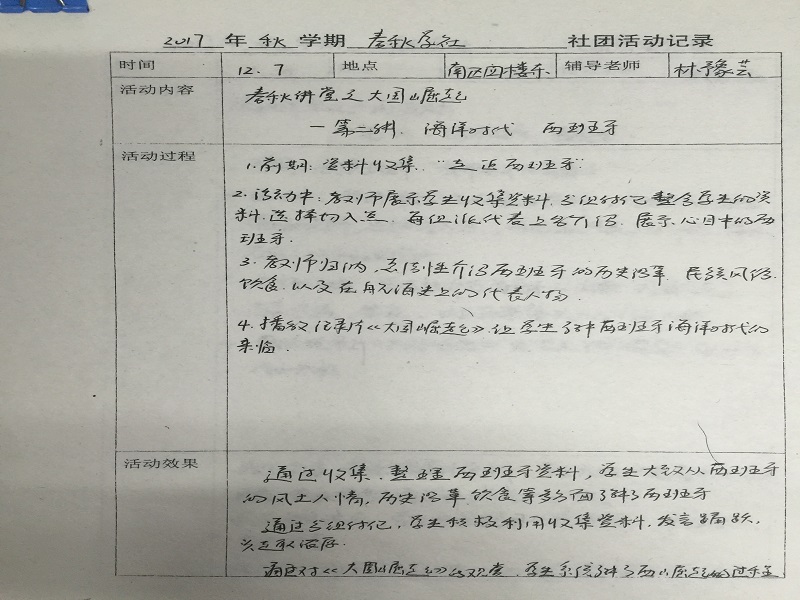 2017 年 秋 学期 春秋学社 社团活动记录
时间 12.7 地点 南区四楼东 辅导老师 林豫芸
活动内容 春秋讲堂之大国崛起
一第二讲. 海洋时代 西班牙
活动过程 1.前期:资料收集.“走近西班牙”
2.活动中:教师展示学生收集资料.分组讨论整合学生的资
料.选择切入点.每组派代表上台介绍.展示心目中的西
班牙.
3.教师归纳,点面性介绍西班牙的历史沿革.民族风俗.
饮食.以及在航海史上的代表人物.
4.播放记录片《大国崛起》,让学生了解西班牙海洋时代的
来临.
活动效果 通过收集.整理西班牙资料,学生大致从西班牙
的风土人情,历史沿革.饮食等方面了解了西班牙
通过分组讨论,学生积极利用收集资料,发言踊跃,
兴趣浓厚.
通过对《大国崛起》的观赏.学生系统了解了西班牙崛起的过程